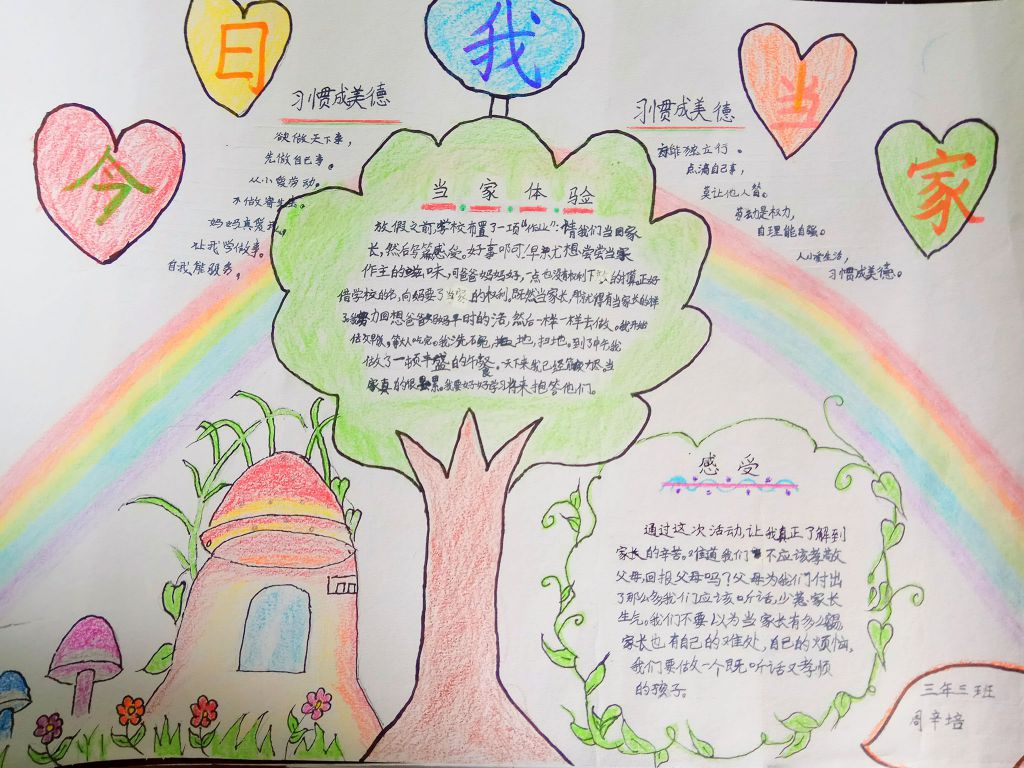 今日我当家
习惯成美德
欲做天下事，
先做自己事。
从小爱劳动。
不做寄生虫。
妈妈真爱我，
让我学做事。
自我能服务，
习惯成美德
亦能独立行。
点滴自己事，
莫让他人笛。
劳动是权力，
自理能自强。
人小愛生活，
习惯成美德。
当家体验
放假之前，学校布置了一项“作业”：请我们当回家
长，然后写篇感受。好事叩可！早就尤想尝尝当家
作主的滋味，可爸爸妈妈好，一点也没有权利下的打算。正好
借学校的名，向妈要了当家的权利，既然当家长，那就得有当家长的样
了。我努力回想爸爸妈妈平时的活，然后一样一样去做。我开始
做早饭。等大人吃完。我洗石碗，拖地，扫地。到了中午我
做了一顿丰盛的午餐。一天下来我已经筋疲力尽，当
家真的很累。我要好好学习将来抱答他们。
感受
通过这次活动，让我真正了解到
家长的辛苦。难道我们不应该孝敬
父母，回报父母吗？父母为我们付出
了那么多我们应该听话，少惹家长
生气。我们不要以为当家长有多么
家长也有自己的难处，自己的烦恼，
我们要做一个既听话又孝顺
的孩子。
三年三班
周辛培